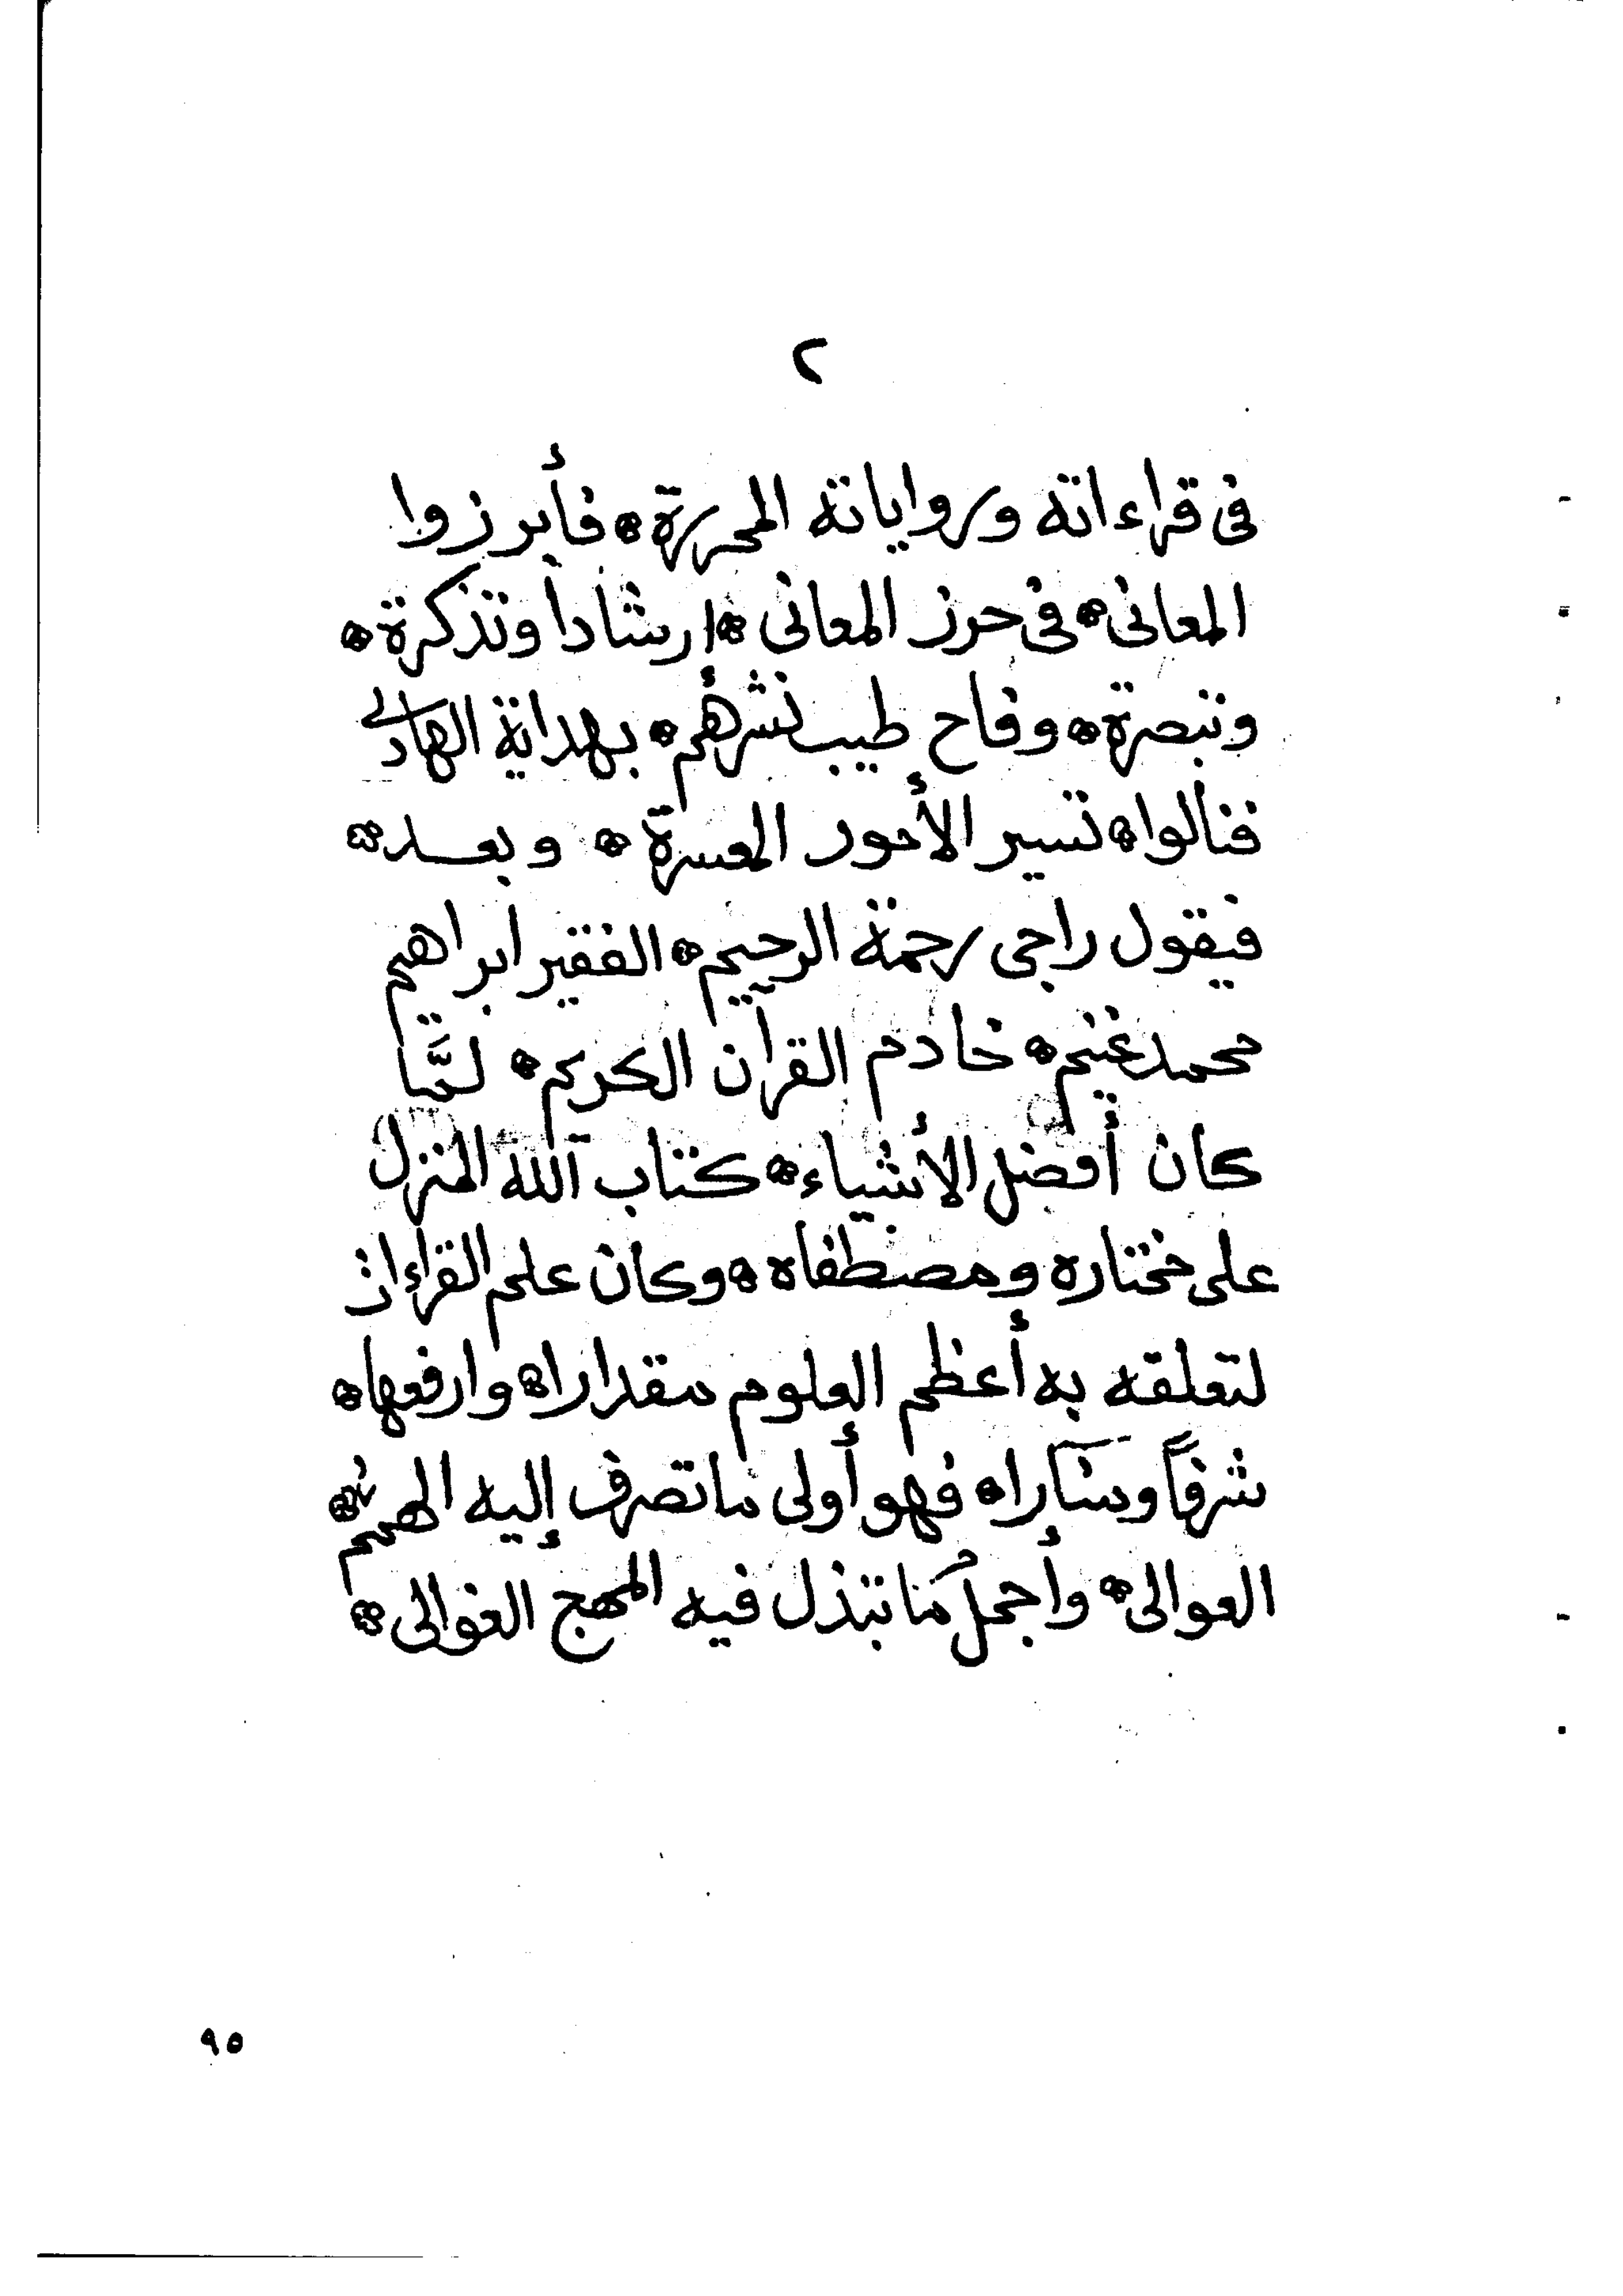 ٢
في قراءاته ورواياته المحررة ۞ فأبرزوا
المعانى ۞ في حرز المعانى ۞ ارشادا وتذكرة ۞
وتبصرة ۞ وفاح طيب نشرهم ۞ بهداية الهادى
فنالوا ۞ تسير الأمور المعسرة ۞ وبعد ۞
فيقول راجى رحمة الرحيم ۞ الفقير ابراهيم
محمد غنيم ۞ خادم القرآن الكريم ۞ لمَّا
كان أفضل الأشياء ۞ كتاب الله المنزل
على مختاره ومصطفاه ۞ وكان علم القراءات
لتعلقه به أعظم العلوم مقدارا ۞ وارفعها ۞
شرفاً ومنارا ۞ فهو أولى ما تصرف إليه الهمم ۞
العوالى ۞ وأجملُ ما تبذل فيه المهج الغوالى ۞
٩٥